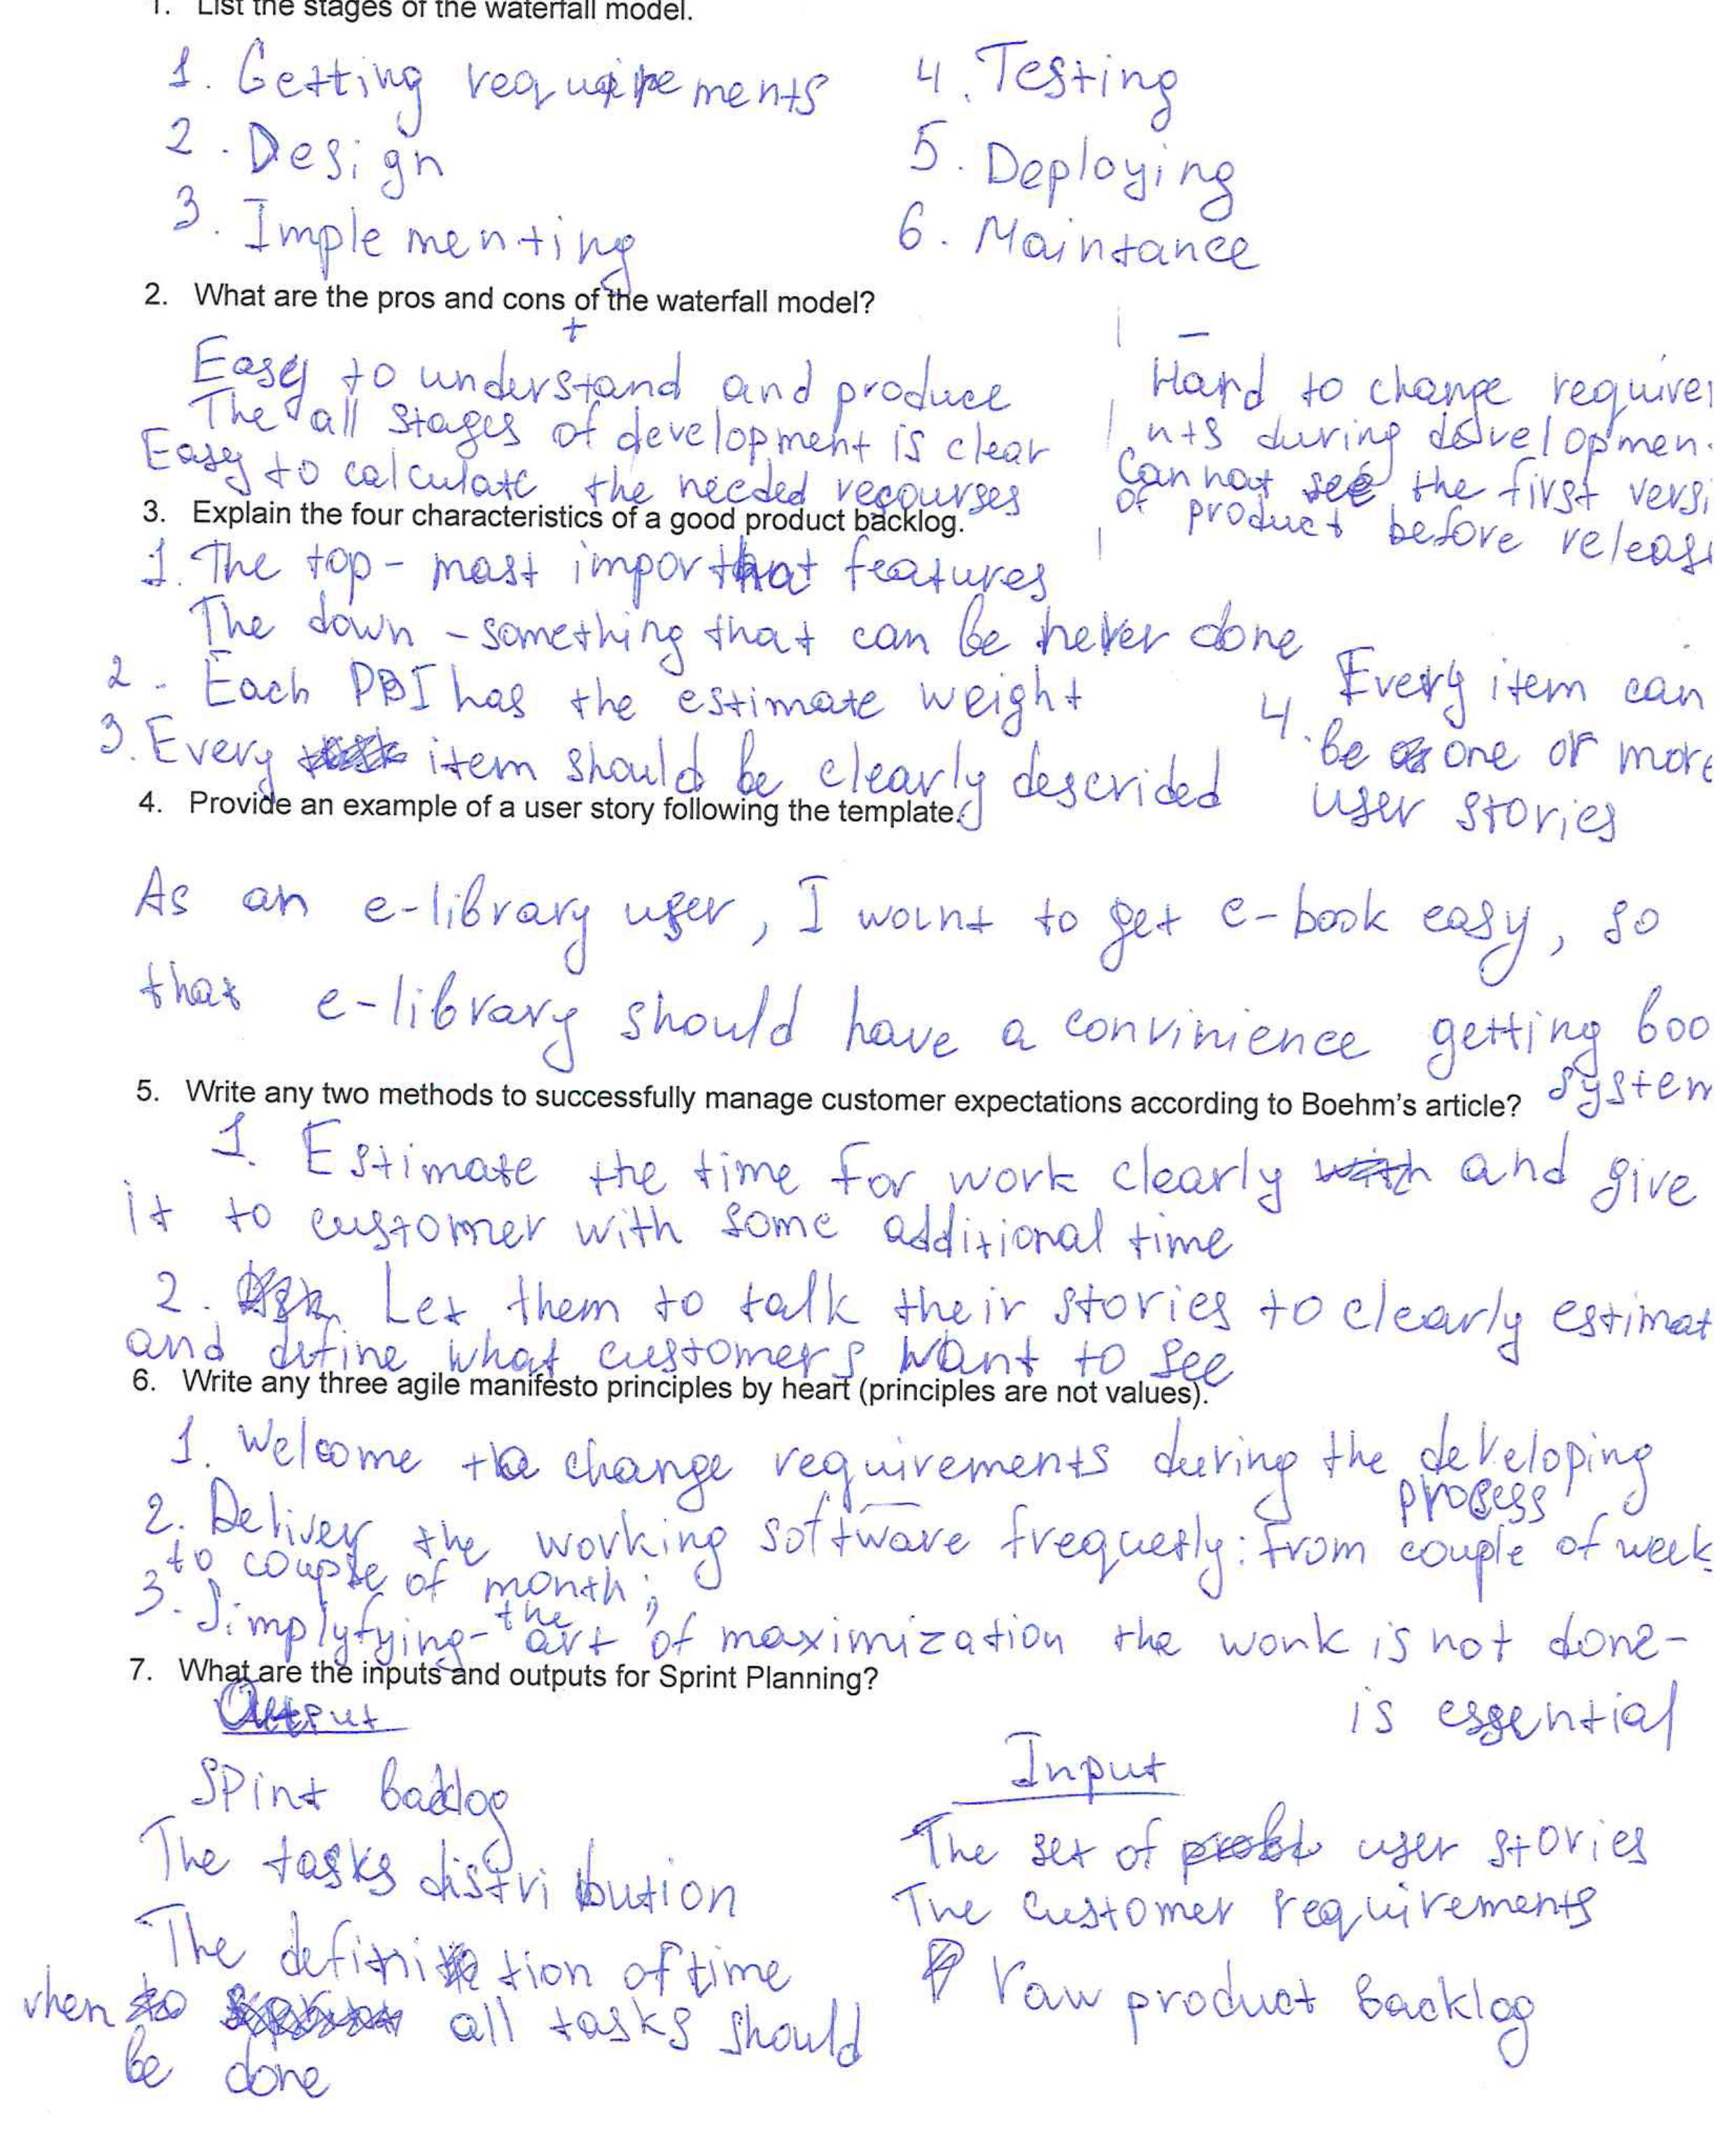 1. List the stages of the waterfall model.
1. Getting requirements
2. Design
3. Implementing
4. Testing
5. Deploying
6. Maintance
2. What are the pros and cons of the waterfall model?
+
Easy to understand and produce
The all stages of development is clear
Easy to calculate the needed recourses
-
Hard to change requirem
nts during development
Cannot see the first versi
of product before releas
3. Explain the four characteristics of a good product backlog.
1. The top - most important features
The down - something that can be never done
2. Each PBI has the estimate weight
3. Every item should be clearly descrided
4. Every item can
be one or more
user stories
4. Provide an example of a user story following the template.
As an e-library user, I want to get e-book easy, so
that e-library should have a convinience getting boo
system
5. Write any two methods to successfully manage customer expectations according to Boehm's article?
1. Estimate the time for work clearly and give
it to customer with some additional time
2. Let them to talk their stories to clearly estimat
and define what customers want to see
6. Write any three agile manifesto principles by heart (principles are not values).
1. Welcome to change requirements during the developing
process
2. Deliver the working software frequetly: from couple of week
to couple of month;
3. Simplyfying - the art of maximization the work is not done -
is essential
7. What are the inputs and outputs for Sprint Planning?
Output
Spint backlog
The tasks distribution
The definition of time
when all tasks should
be done
Input
The set of user stories
The customer requirements
raw product backlog